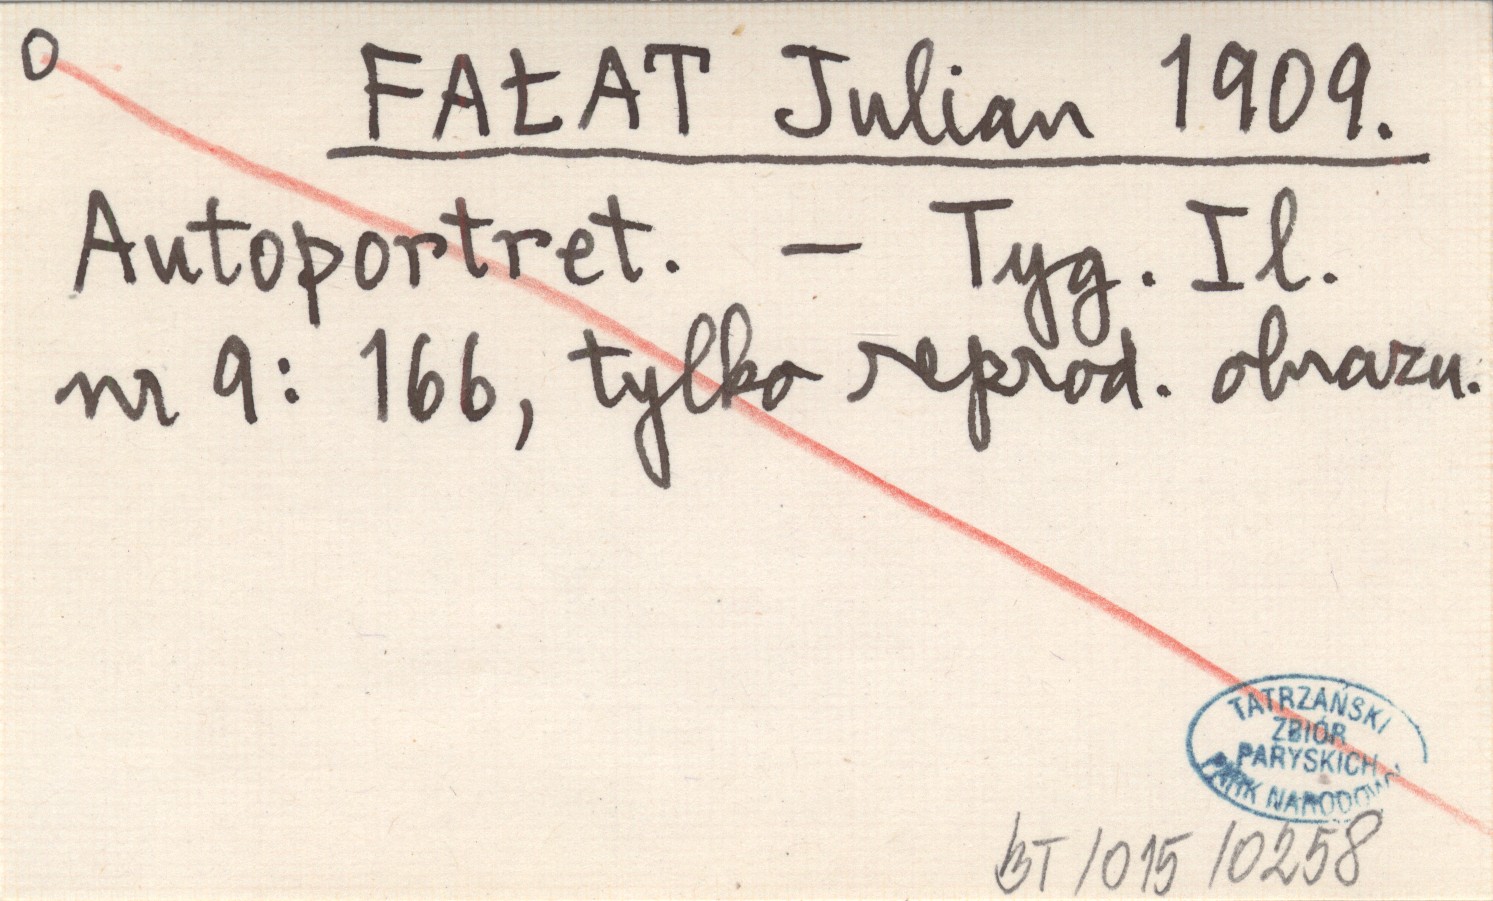 O
FAŁAT Julian 1909.
Autoportret. – Tyg. Il.
nr 9: 166, tylko reprod. obrazu.
TATRZAŃSKI
ZBIÓR
PARYSKICH
PARK NARODOWY
BT/015/0258